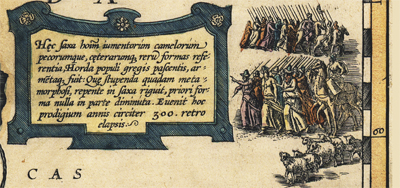 D A
Hęc saxa hoim̄ iumentorum camelorum
pecorumque, cęterarumq̧ rerū formas refe-
rentia, Horda populi gregis pascentis, ar-
mētaq̧ fuit: Quę stupenda quadam meta-
morphosi, repente in saxa riguit, priori for-
ma nulla in parte diminuta. Evenit hoc
prodigium annis circiter 300. retro
elapsis.
60
CAS